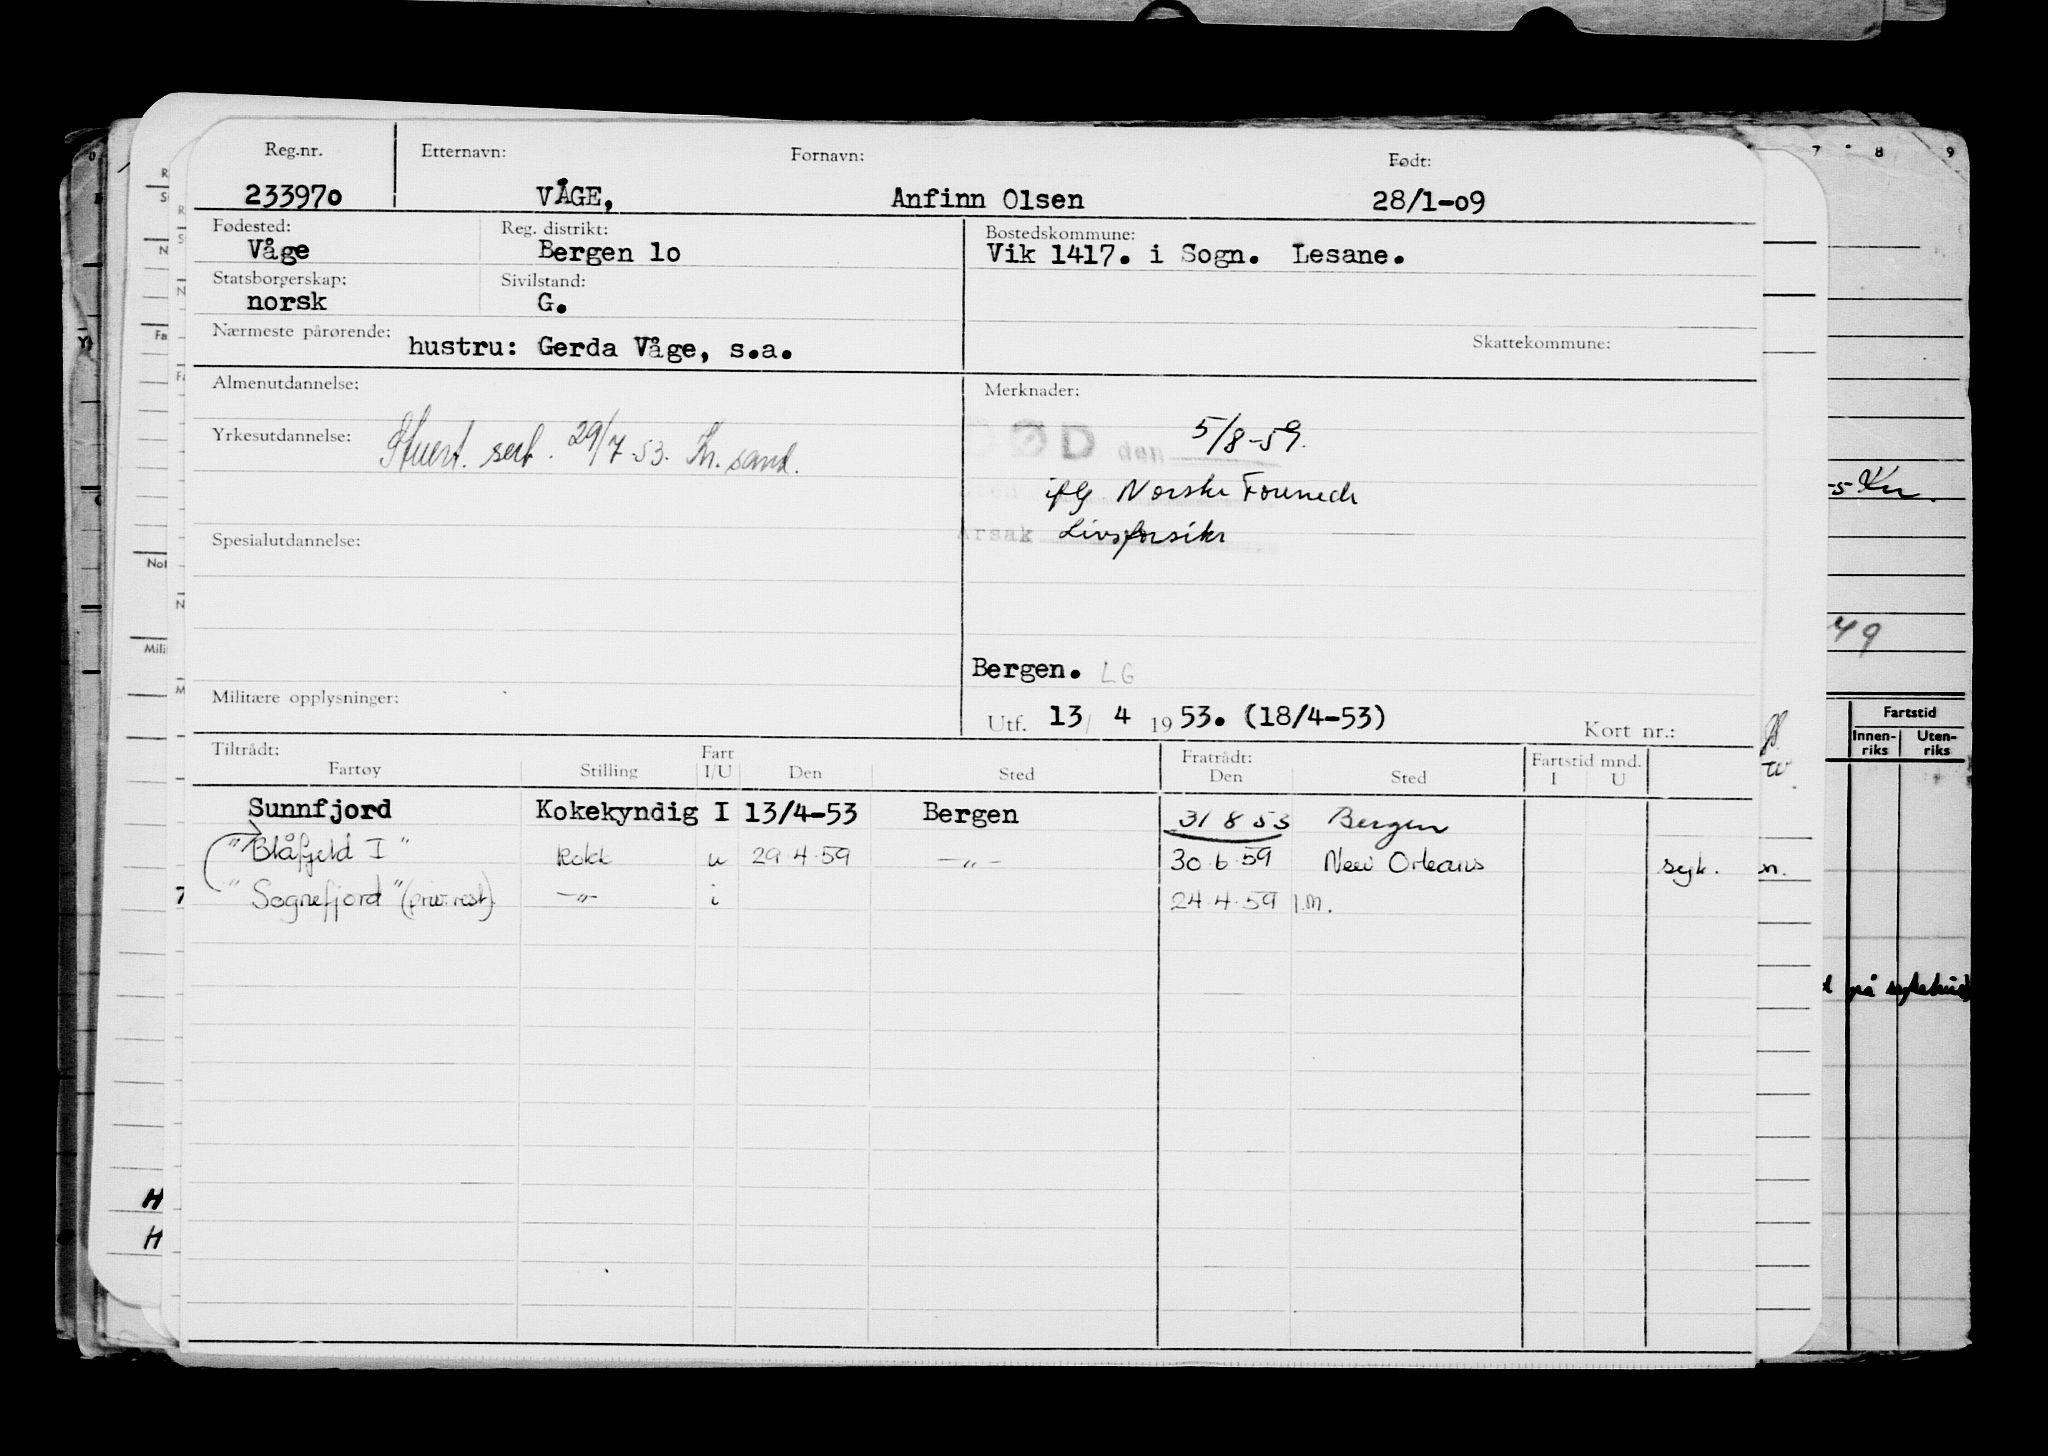 Reg.nr. Etternavn: Fornavn: Født:
233970 VÅGE, Anfinn Olsen 28/1-09
Fødested: Reg. distrikt: Bostedskommune:
Våge Bergen 10 Vik 1417. i Sogn. Lesane.
Statsborgerskap: Sivilstand:
norsk G.
Nærmeste pårørende: hustru: Gerda Våge, s.a. Skattekommune:
Almenutdannelse: Merknader:
DØD den 5/8-59.
Yrkesutdannelse: Stuert. sert. 29/7-53. Kr. sand.
iflg Norske Forenede
Årsak Livsforsikr
Spesialutdannelse:
Bergen. LG
Militære opplysninger: Utf. 13/ 4 1953. (18/4-53) Kort nr.:
Tiltrådt: Fart Fratrådt: Fartstid mnd.
Fartøy Stilling I/U Den Sted Den Sted I U
Sunnfjord Kokekyndig I 13/4-53 Bergen 31 8 53 Bergen
"Blåfjeld I" Kokk u 29.4.59 -"- 30.6.59 New Orleans syk.
"Sognefjord" (priv. rest) -"- i 24.4.59 I.M.
7 8 9
49
Fartstid
Innen-riks Uten-riks
på sykehus
H
H